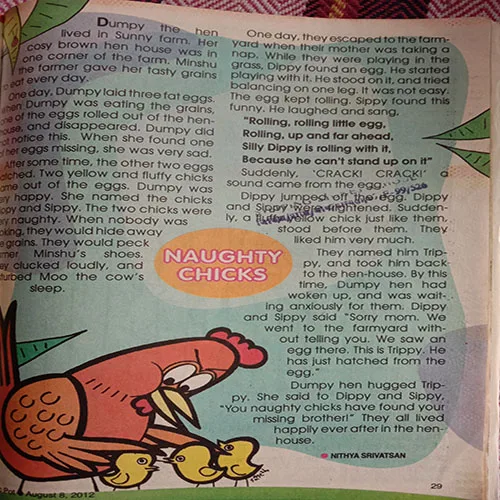 Dumpy the hen
lived in Sunny farm. Her
cosy brown hen house was in
one corner of the farm. Minshu
the farmer gave her tasty grains
to eat every day.
One day, Dumpy laid three fat eggs.
When Dumpy was eating the grains,
one of the eggs rolled out of the hen-
house, and disappeared. Dumpy did
not notice this. When she found one
of her eggs missing, she was very sad.
After some time, the other two eggs
hatched. Two yellow and fluffy chicks
came out of the eggs. Dumpy was
very happy. She named the chicks
Dippy and Sippy. The two chicks were
very naughty. When nobody was
looking, they would hide away
the grains. They would peck
farmer Minshu's shoes.
They clucked loudly, and
disturbed Moo the cow's
sleep.
NAUGHTY
CHICKS
One day, they escaped to the farm-
yard when their mother was taking a
nap. While they were playing in the
grass, Dippy found an egg. He started
playing with it. He stood on it, and tried
balancing on one leg. It was not easy.
The egg kept rolling. Sippy found this
funny. He laughed and sang,
"Rolling, rolling little egg,
Rolling, up and far ahead,
Silly Dippy is rolling with it,
Because he can't stand up on it"
Suddenly, 'CRACK! CRACK!' a
sound came from the egg.
Dippy jumped off the egg. Dippy
and Sippy were frightened. Sudden-
ly, a fluffy yellow chick just like them,
stood before them. They
liked him very much.
They named him Trip-
py, and took him back
to the hen-house. By this
time, Dumpy hen had
woken up, and was wait-
ing anxiously for them. Dippy
and Sippy said "Sorry mom. We
went to the farmyard with-
out telling you. We saw an
egg there. This is Trippy. He
has just hatched from the
egg."
Dumpy hen hugged Trip-
py. She said to Dippy and Sippy,
"You naughty chicks have found your
missing brother!" They all lived
happily ever after in the hen-
house.
NITHYA SRIVATSAN
29
August 8, 2012